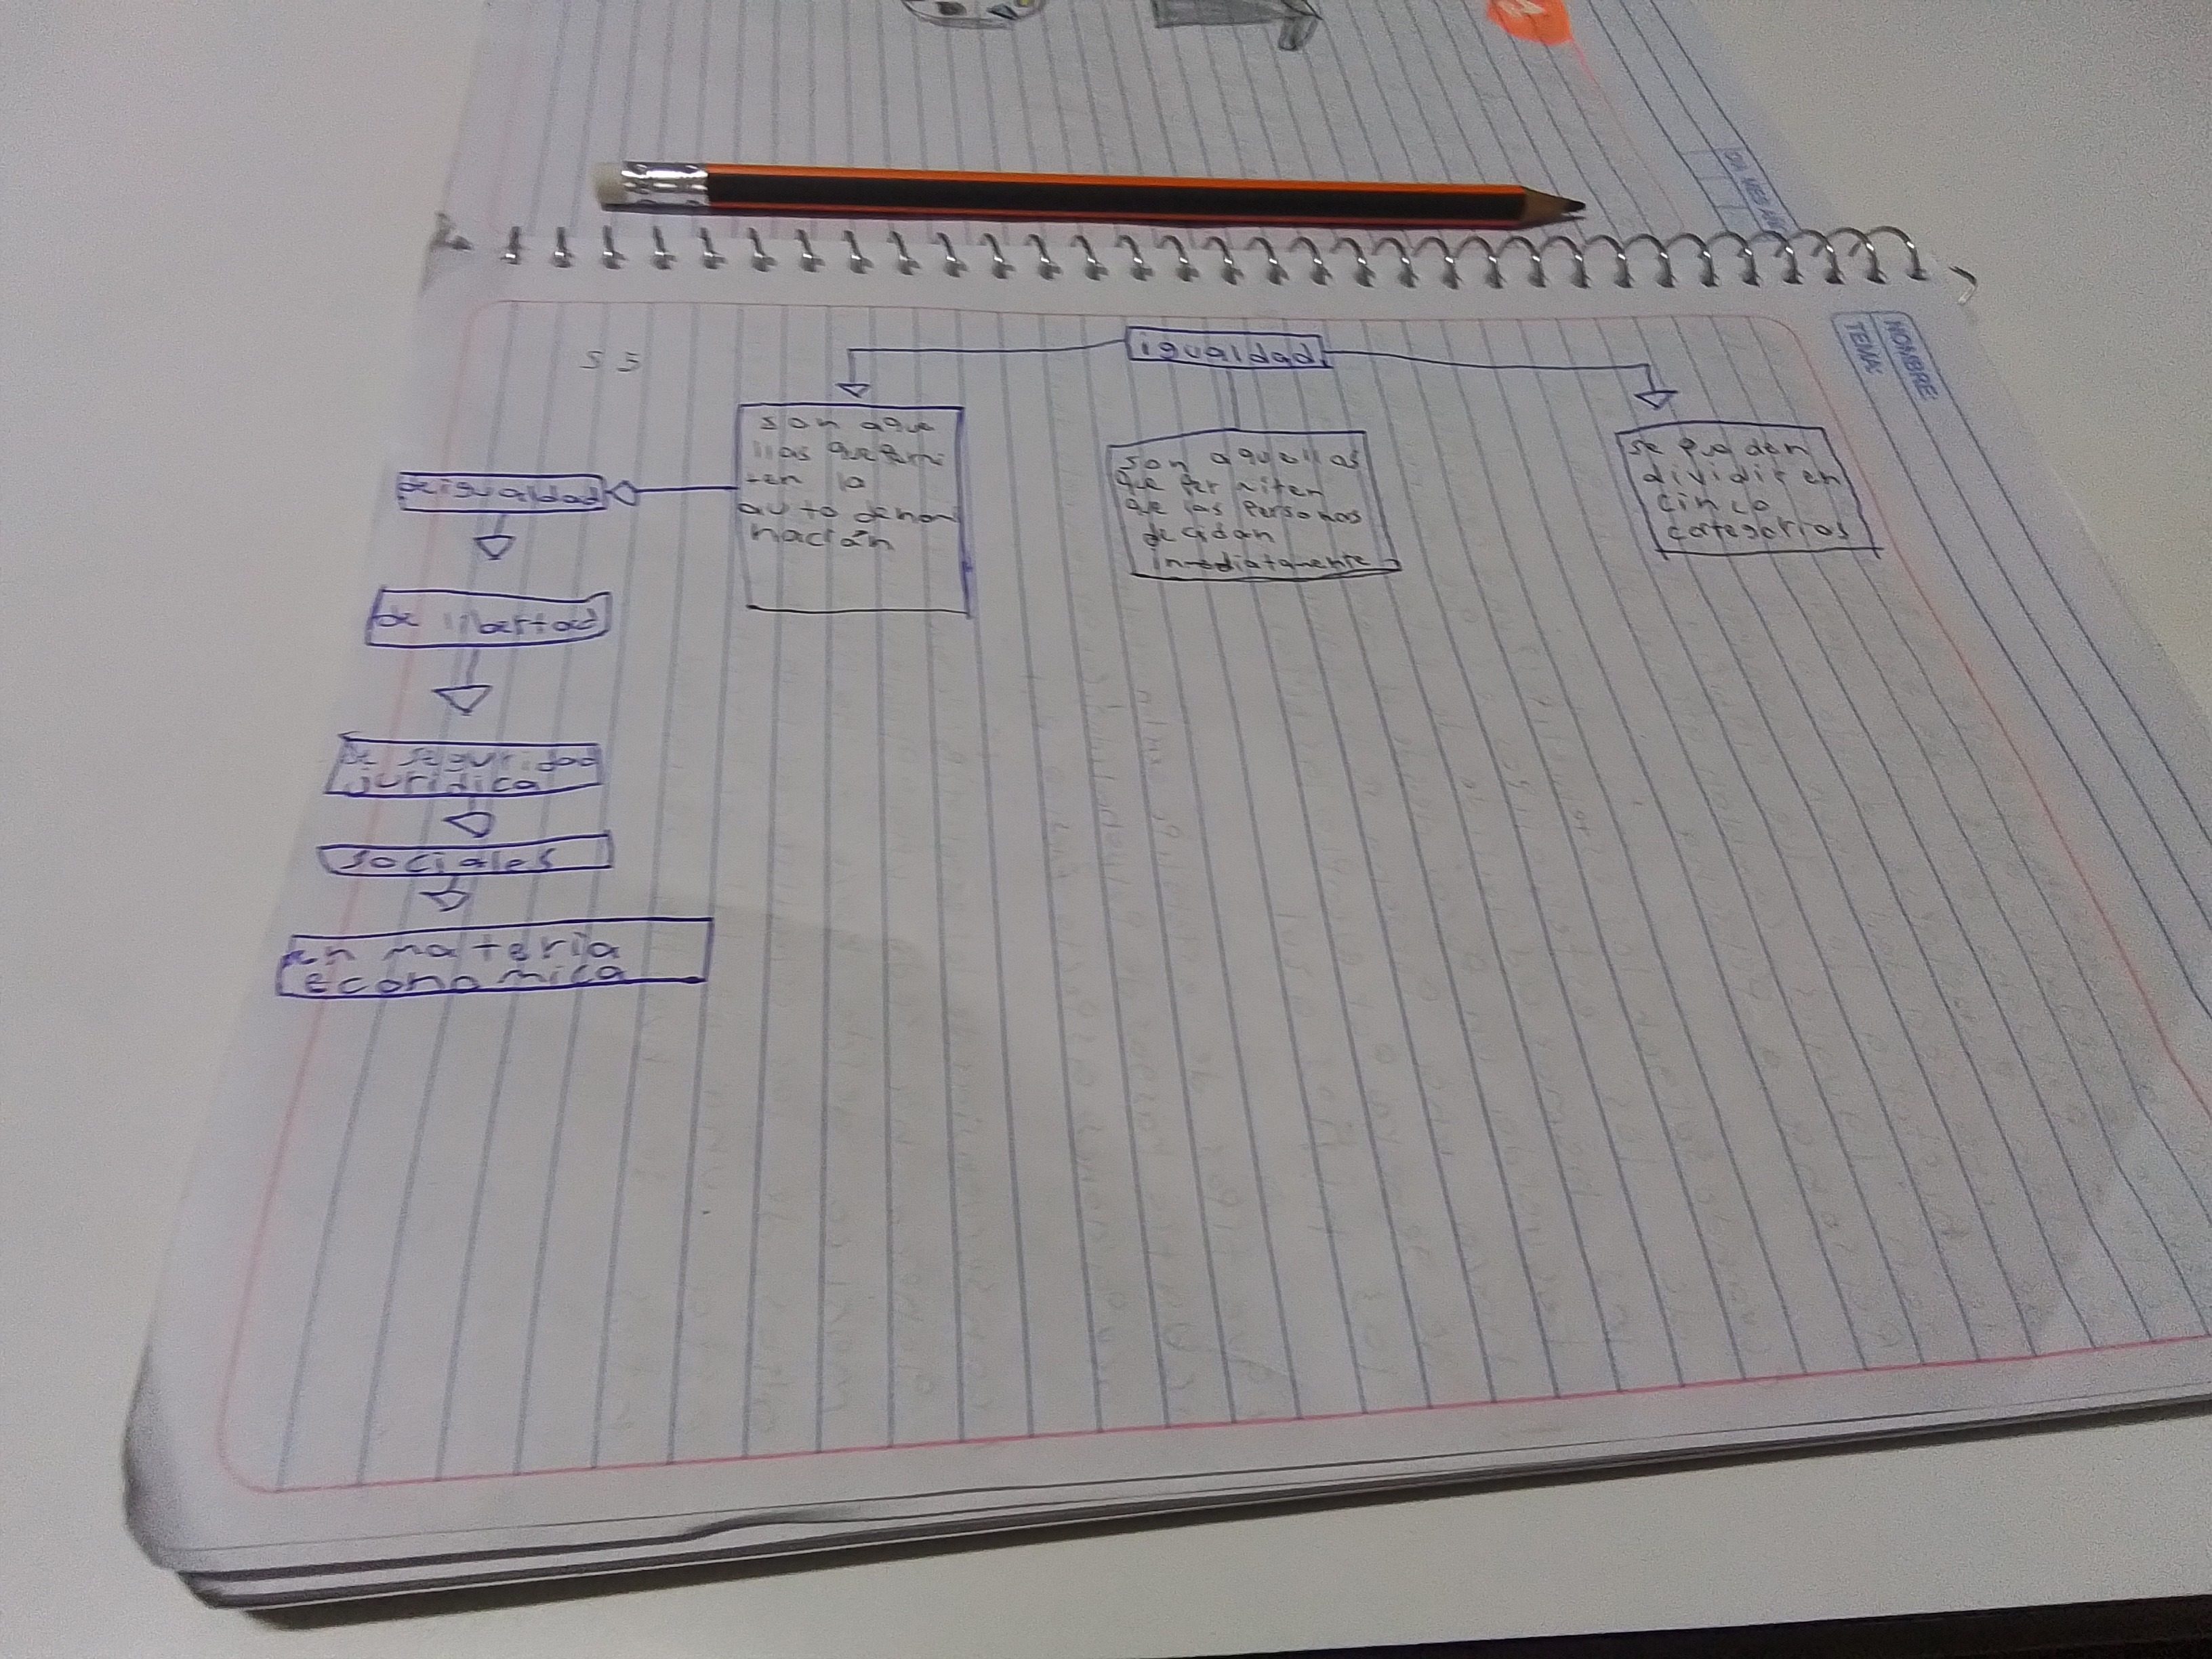 DIA MES
NOMBRE:
TEMA:
S 5
igualdad
son aque
llas que permi
ten la
auto denomi
nación
son aquellas
que permiten
que las personas
decidan
inmediatamente
se pueden
dividir en
cinco
categorias
de igualdad
de libertad
de seguridad
juridica
sociales
en materia
economica